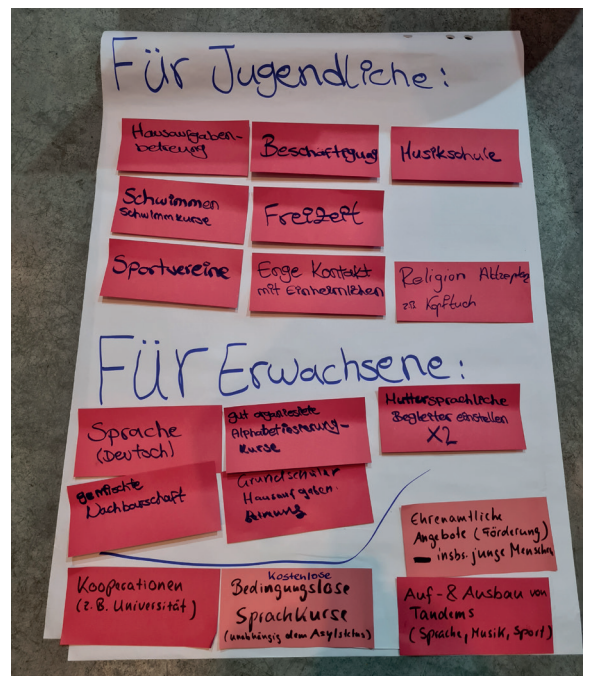 Für Jugendliche:
Hausaufgaben-
betreuung
Beschäftigung
Musikschule
Schwimmen
Schwimmkurse
Freizeit
Sportvereine
Enge Kontakt
mit Einheimischen
Religion Akzeptanz
zu Kopftuch
Für Erwachsene:
Sprache
(Deutsch)
gut organisierte
Alphabetisierung-
kurse
Muttersprachliche
Begleiter einstellen
X2
gemischte
Nachbarschaft
Grundschüler
Hausaufgaben.
Ehrenamtliche
Angebote (Förderung)
insbs. junge Menschen
Kooperationen
(z.B. Universität)
Kostenlose
Bedingungslose
Sprachkurse
(unabhängig dem Asylstatus)
Auf- & Ausbau von
Tandems
(Sprache, Musik, Sport)